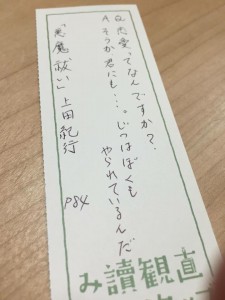 Q 恋愛ってなんですか?
A そうか君にも…。じつはぼくも
やられているんだ
「悪魔祓い」上田紀行
P84
直観讀み